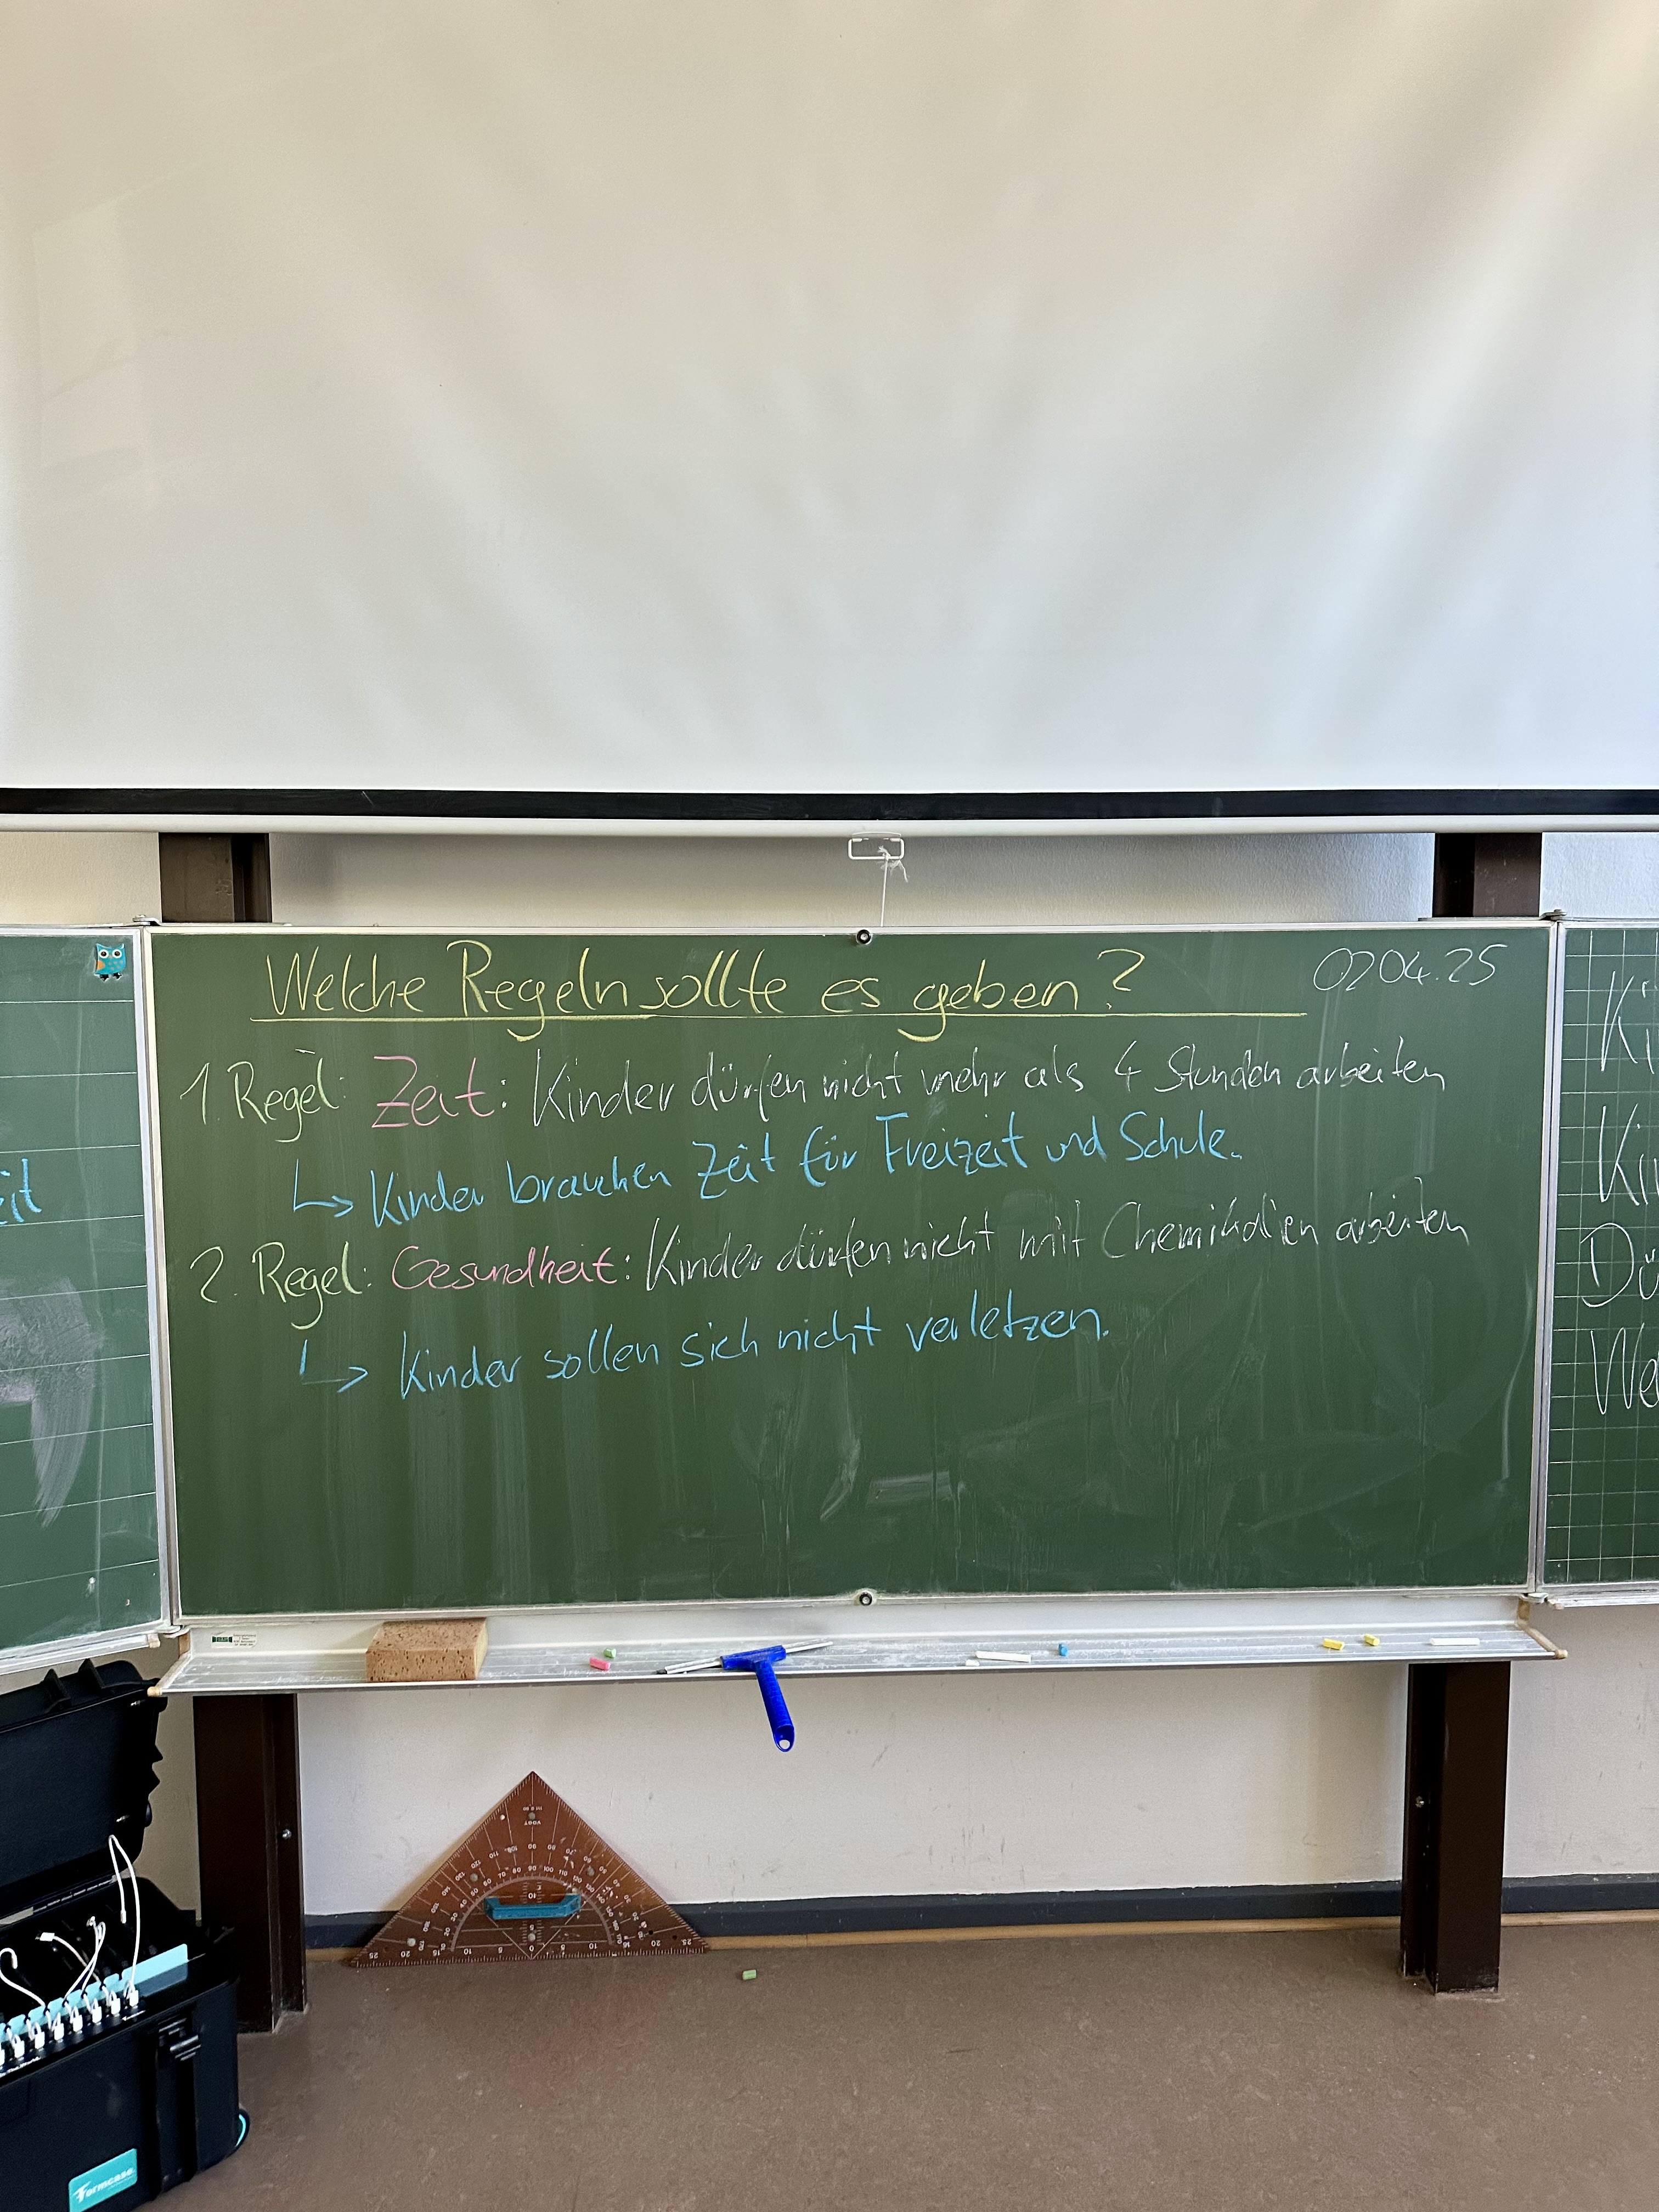 Welche Regeln sollte es geben?
02.04.25
1. Regel: Zeit: Kinder dürfen nicht mehr als 4 Stunden arbeiten
↳ Kinder brauchen Zeit für Freizeit und Schule.
2. Regel: Gesundheit: Kinder dürfen nicht mit Chemikalien arbeiten
↳ Kinder sollen sich nicht verletzen.
formcase